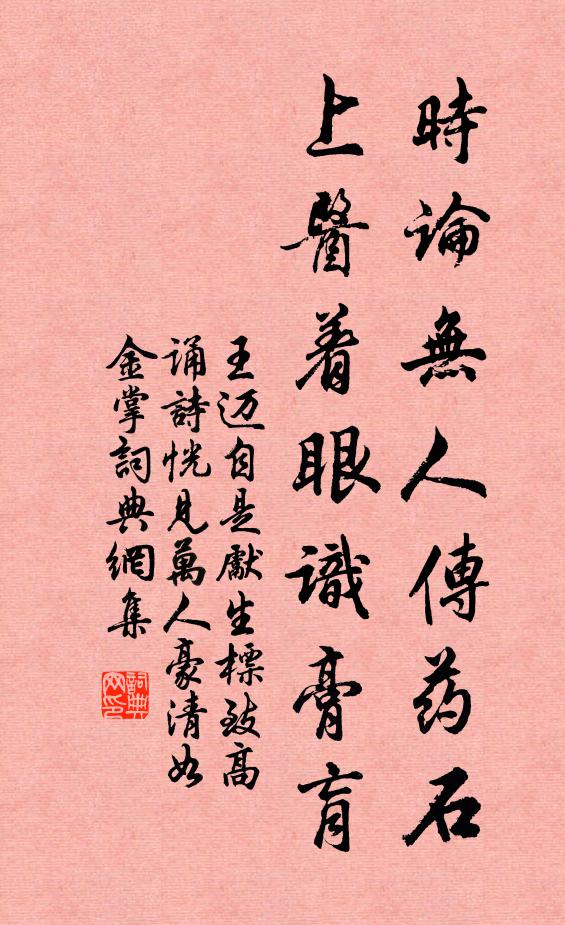 時論無人傳药石
上醫着眼識膏肓
王迈自是獻生標致高
誦詩恍見萬人豪清如
金掌詞典網集
詞典
网印